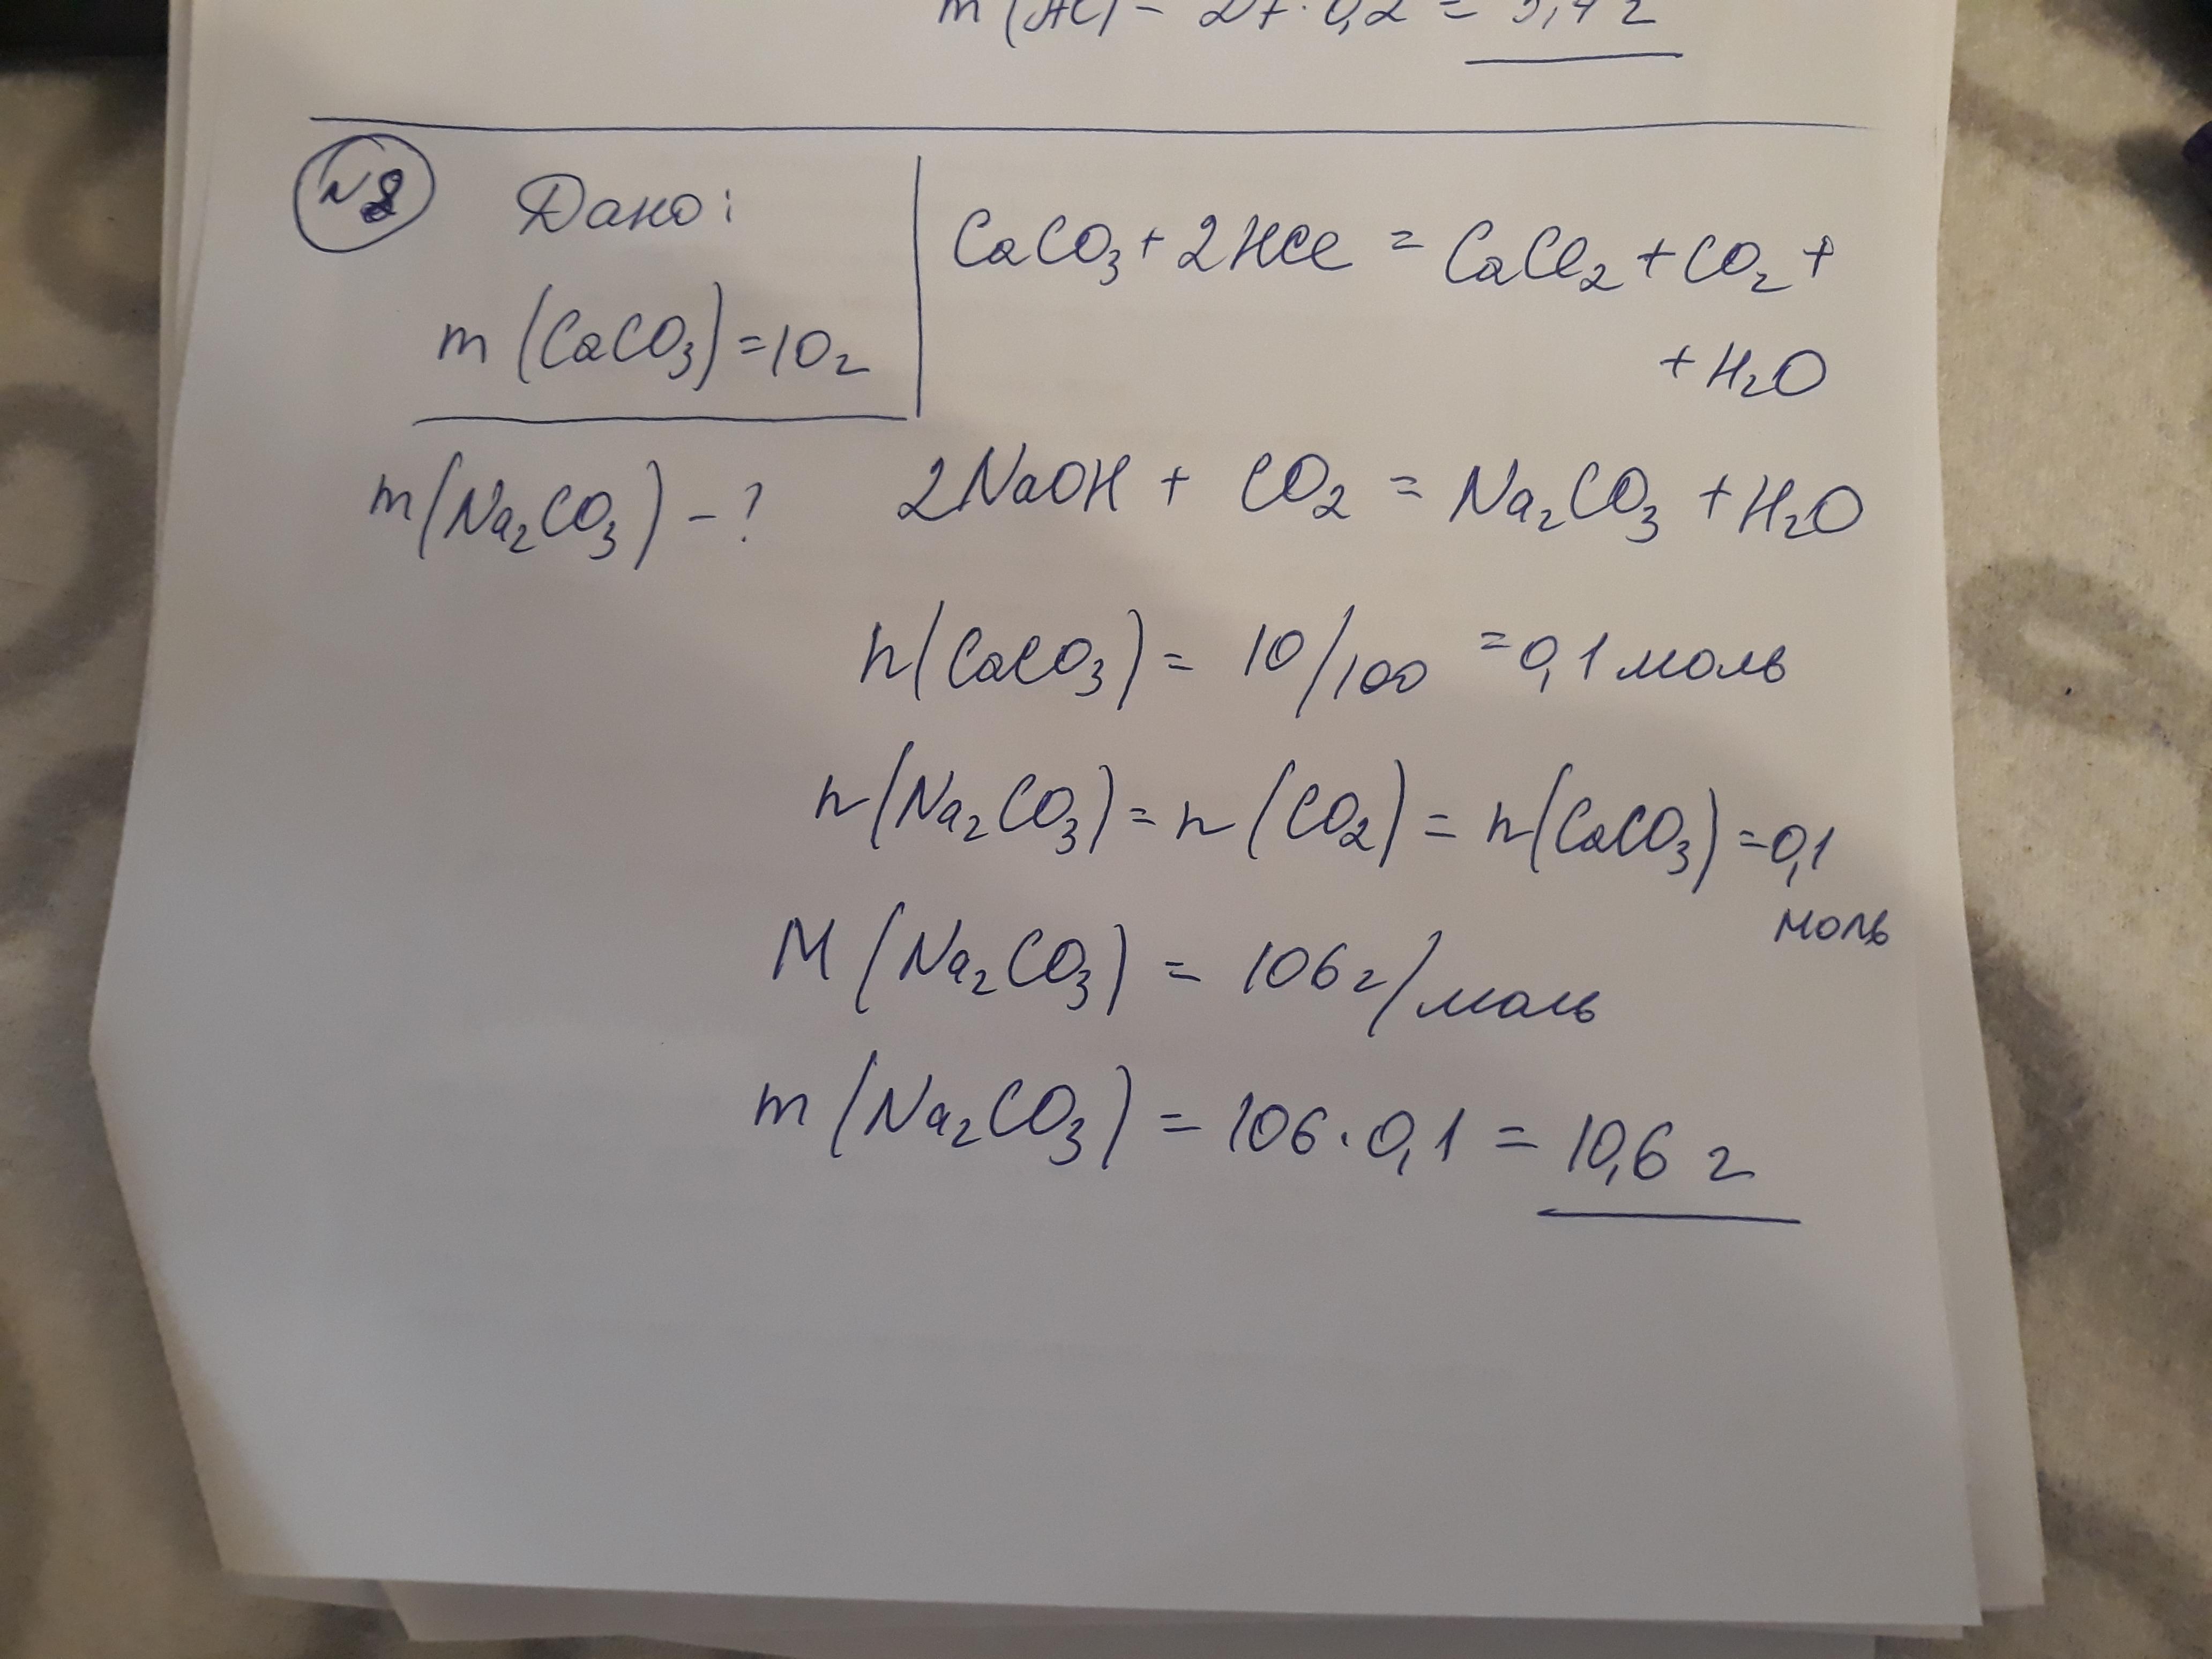 m(Al) = 27·0,2 = 5,4 г
№8 Дано:
m(CaCO₃)=10г
m(Na₂CO₃) – ?
CaCO₃ + 2HCl = CaCl₂ + CO₂ +
+ H₂O
2NaOH + CO₂ = Na₂CO₃ + H₂O
n(CaCO₃) = 10/100 = 0,1 моль
n(Na₂CO₃) = n(CO₂) = n(CaCO₃) = 0,1
моль
M(Na₂CO₃) = 106 г/моль
m(Na₂CO₃) = 106·0,1 = 10,6 г